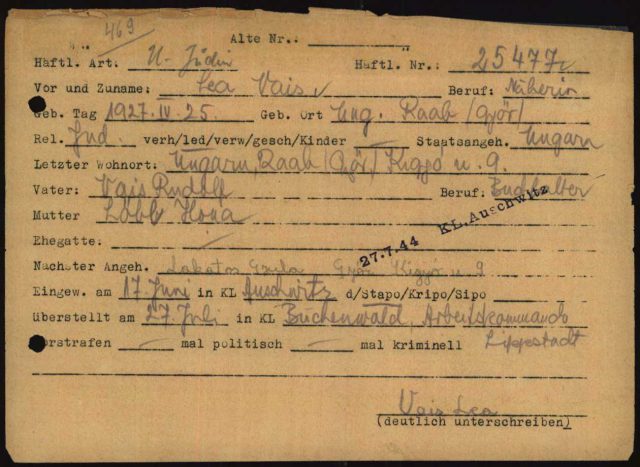 469
Alte Nr.:
Häftl. Art: U- Jüdin Häftl. Nr.: 25477
Vor und Zuname: Lea Vais Beruf: Näherin
Geb. Tag 1927.IV.25 Geb. Ort Ung. Raab /Győr/
Rel. Jüd. verh/led/verw/gesch/Kinder Staatsangeh. Ungarn
Letzter Wohnort: Ungarn, Raab /Győr/ Kigyó u. 9.
Vater: Vais Rudolf Beruf: Buchhalter
Mutter Löbl Ilona
Ehegatte:
27.7.44 KL. Auschwitz
Nächster Angeh. Lakatos Győr Kigyó u 9
Eingew. am 17 Juni in KL Auschwitz d/Stapo/Kripo/Sipo
überstellt am 27 Juli in KL Buchenwald, Arbeitskommando
orstrafen mal politisch mal kriminell Lippstadt
Vais Lea
(deutlich unterschreiben)